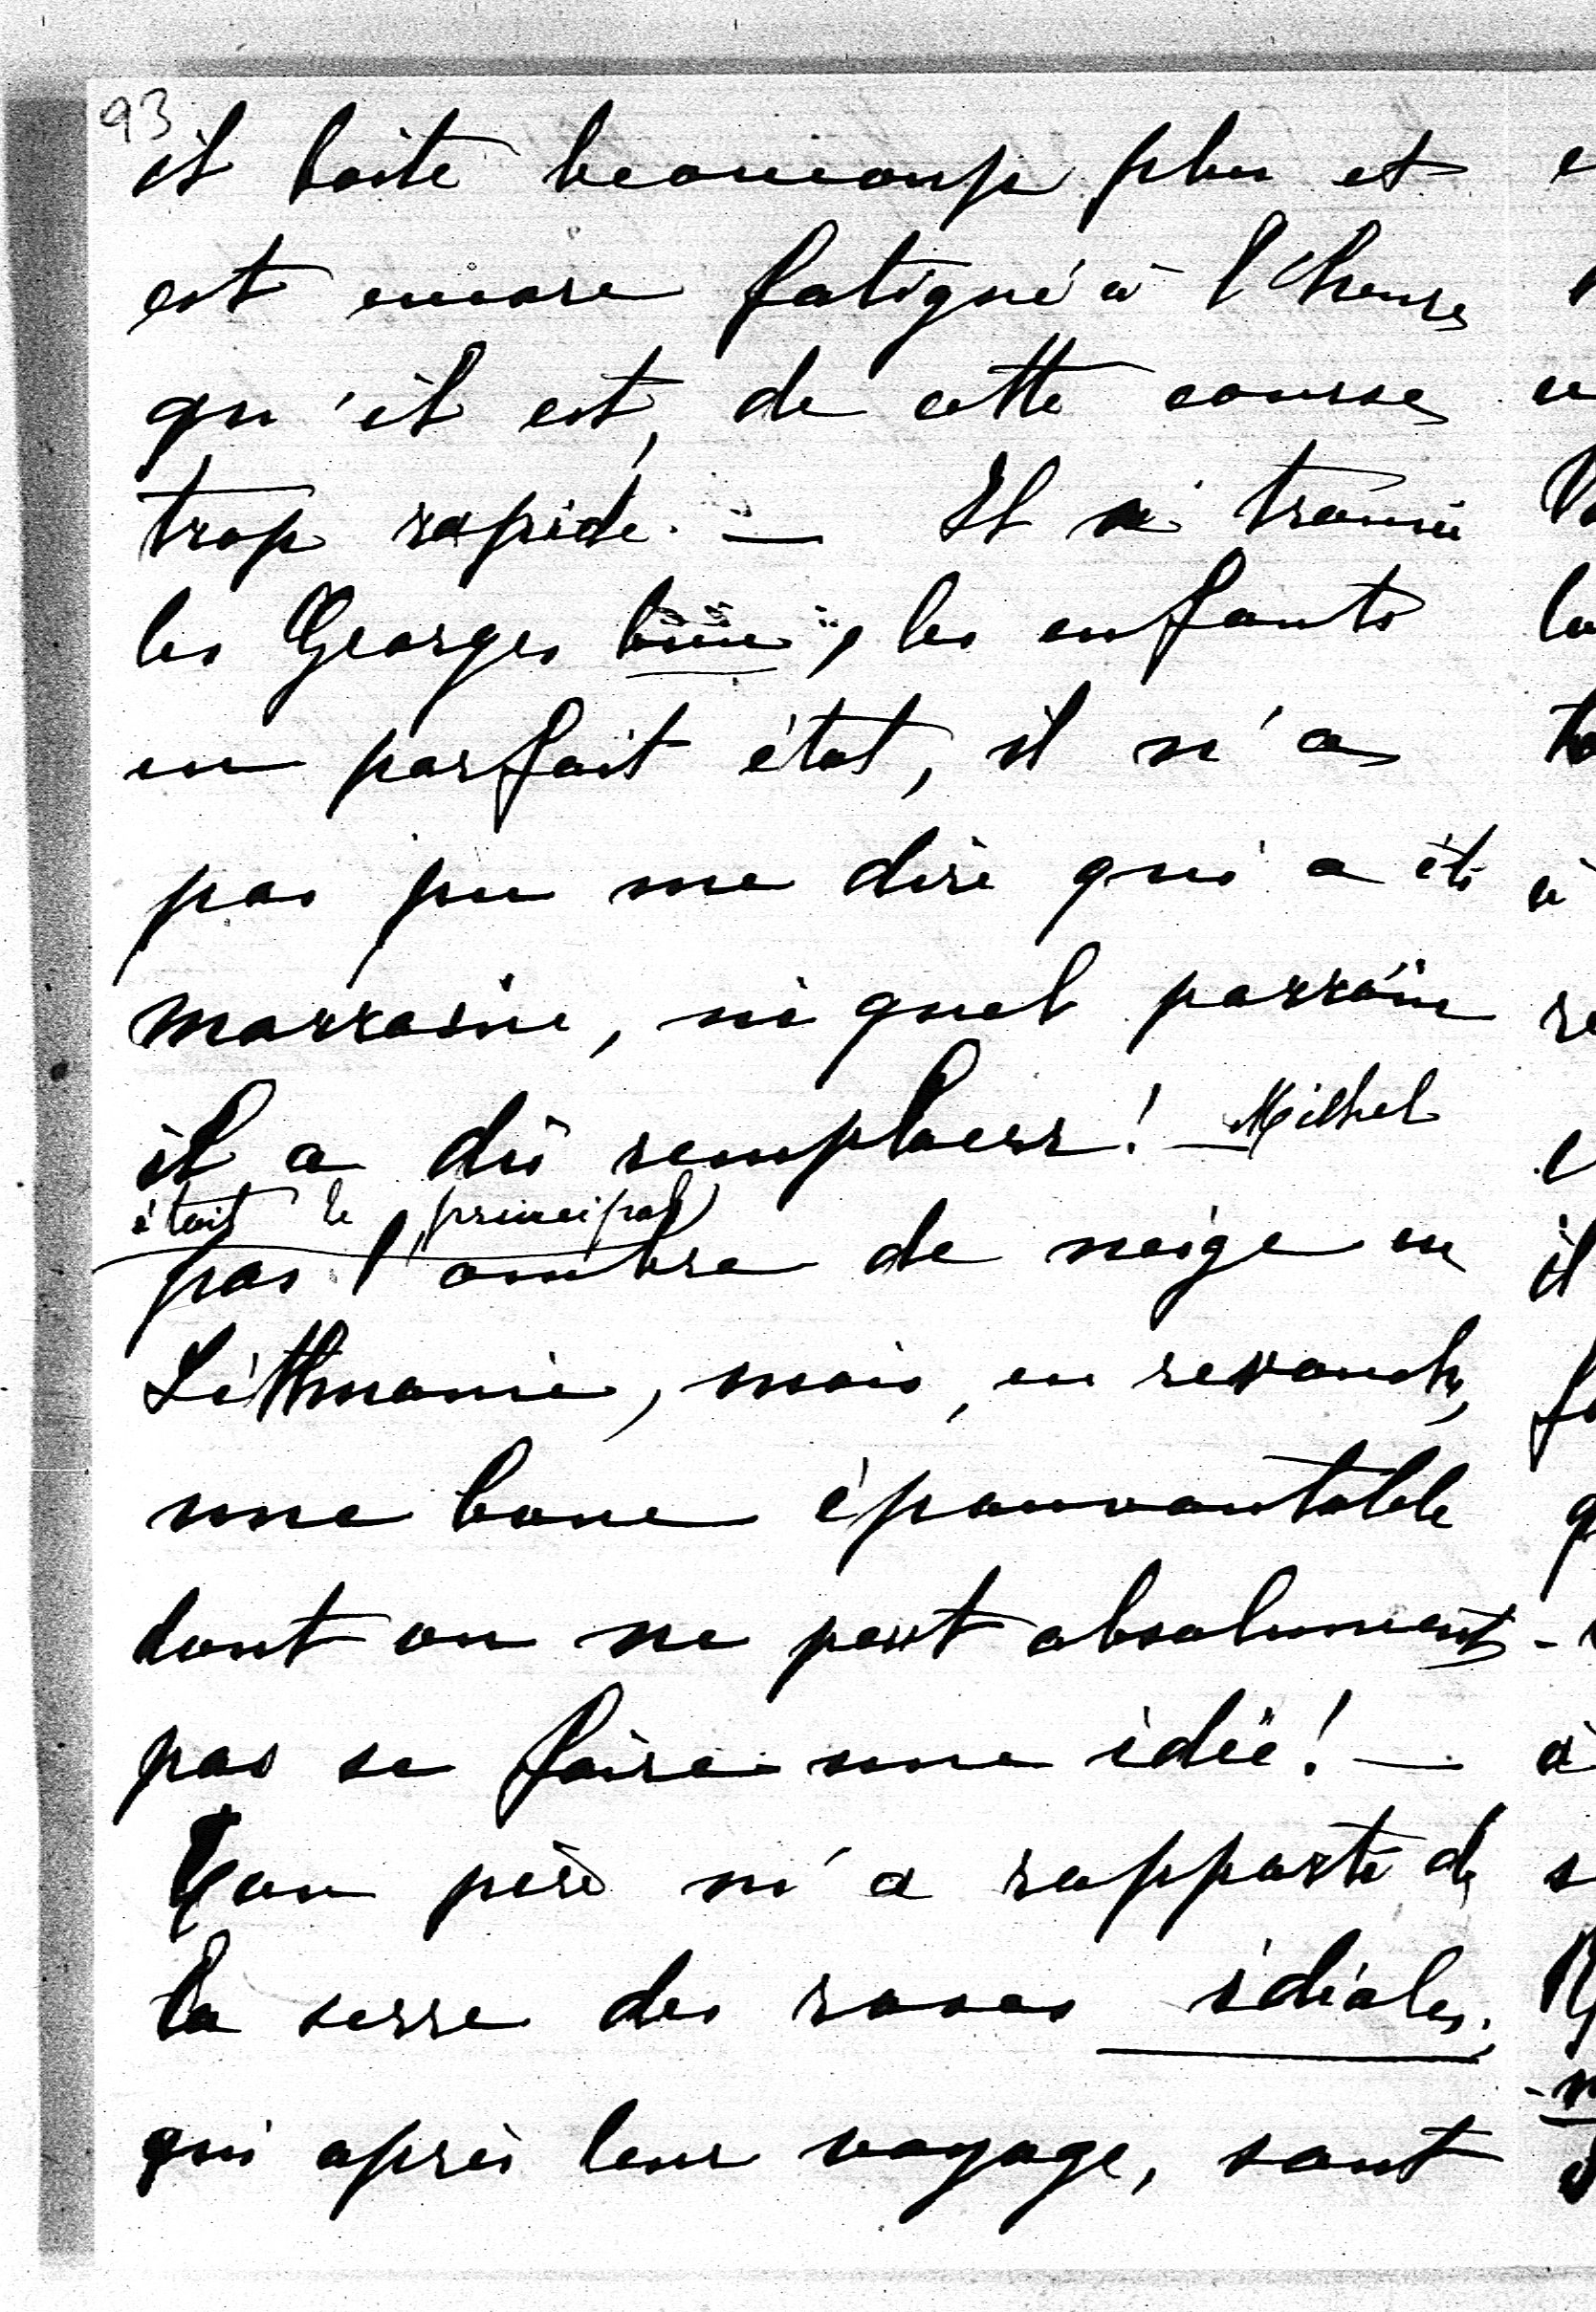 93
il boite beaucoup plus et
est encore fatigué à l'heure
qu'il est, de cette course
trop rapide. — Il a trouvé
les Georges bien, les enfants
en parfait état, il n'a
pas pu me dire qui a été
marraine, ni quel parrain
il a dû remplacer! — Michel
était le principal
pas l'ombre de neige en
Lithuanie, mais, en revanche,
une boue épouvantable
dont on ne peut absolument
pas se faire une idée! —
Ton père m'a rapporté de
la serre des roses idéales,
qui après leur voyage, sont